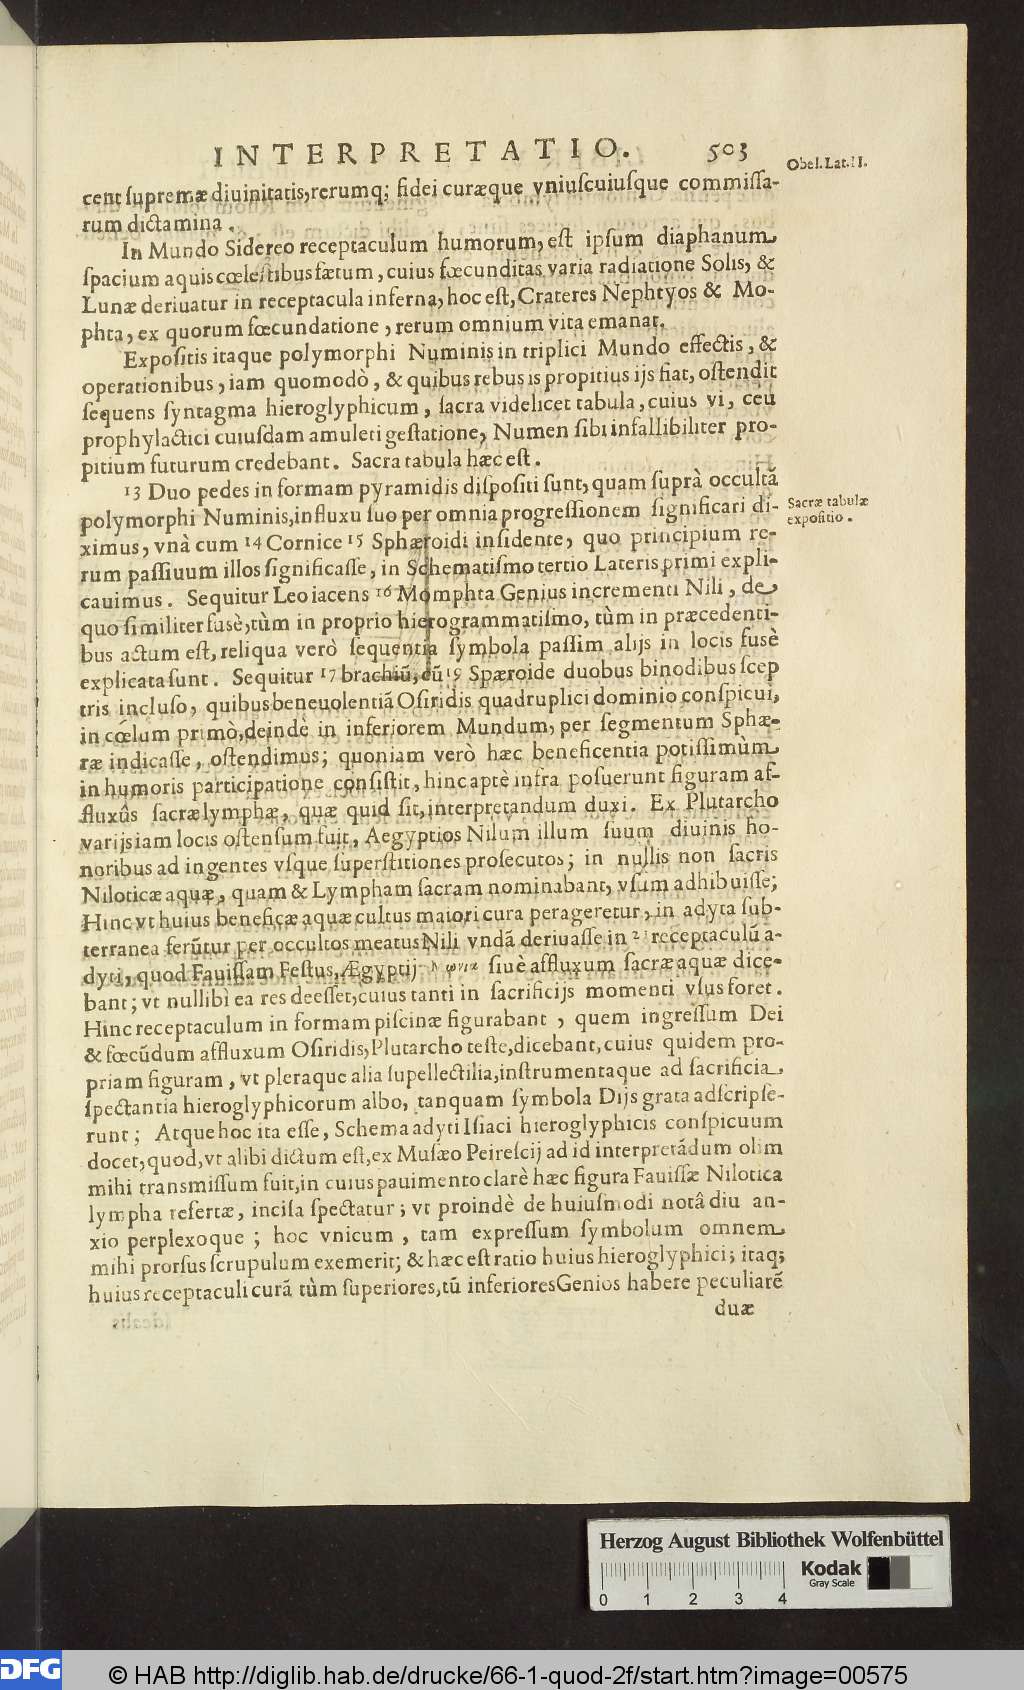 INTERPRETATIO. 503
Obel. Lat. II.
cent supremæ diuinitatis, rerumq; fidei curæque vniuscuiusque commissa-
rum dictamina.
In Mundo Sidereo receptaculum humorum, est ipsum diaphanum
spacium aquis cœlestibus fætum, cuius fœcunditas varia radiatione Solis, &
Lunæ deriuatur in receptacula inferna, hoc est, Crateres Nephtyos & Mo-
phta, ex quorum fœcundatione, rerum omnium vita emanat.
Expositis itaque polymorphi Numinis in triplici Mundo effectis, &
operationibus, iam quomodò, & quibus rebus is propitius ijs fiat, ostendit
sequens syntagma hieroglyphicum, sacra videlicet tabula, cuius vi, ceu
prophylactici cuiusdam amuleti gestatione, Numen sibi infallibiliter pro-
pitium futurum credebant. Sacra tabula hæc est.
13 Duo pedes in formam pyramidis dispositi sunt, quam suprà occultā
polymorphi Numinis, influxu suo per omnia progressionem significari di-
Sacræ tabulæ
expositio.
ximus, vnà cum 14 Cornice 15 Sphæroidi insidente, quo principium re-
rum passiuum illos significasse, in Schematismo tertio Lateris primi expli-
cauimus. Sequitur Leo iacens 16 Momphta Genius incrementi Nili, de
quo similiter fusè, tùm in proprio hierogrammatismo, tùm in præcedenti-
bus actum est, reliqua verò sequentia symbola passim alijs in locis fusè
explicata sunt. Sequitur 17 brachiū, cū 19 Spæroide duobus binodibus scep
tris incluso, quibus beneuolentiā Osiridis quadruplici dominio conspicui,
in cœlum primò, deindè in inferiorem Mundum, per segmentum Sphæ-
ræ indicasse, ostendimus; quoniam verò hæc beneficentia potissimùm
in humoris participatione consistit, hinc aptè infra posuerunt figuram af-
fluxûs sacræ lymphæ, quæ quid sit, interpretandum duxi. Ex Plutarcho
varijs iam locis ostensum fuit, Aegyptios Nilum illum suum diuinis ho-
noribus ad ingentes vsque superstitiones prosecutos; in nullis non sacris
Niloticæ aquæ, quam & Lympham sacram nominabant, vsum adhibuisse;
Hinc vt huius beneficæ aquæ cultus maiori cura perageretur, in adyta sub-
terranea ferūtur per occultos meatus Nili vndā deriuasse in 21 receptaculū a-
dyti, quod Fauissam Festus, Ægyptij siuè affluxum sacræ aquæ dice-
bant; vt nullibì ea res deesset, cuius tanti in sacrificijs momenti vsus foret.
Hinc receptaculum in formam piscinæ figurabant, quem ingressum Dei
& fœcūdum affluxum Osiridis, Plutarcho teste, dicebant, cuius quidem pro-
priam figuram, vt pleraque alia supellectilia, instrumentaque ad sacrificia
spectantia hieroglyphicorum albo, tanquam symbola Dijs grata adscripse-
runt; Atque hoc ita esse, Schema adyti Isiaci hieroglyphicis conspicuum
docet, quod, vt alibi dictum est, ex Musæo Peirescij ad id interpretādum olim
mihi transmissum fuit, in cuius pauimento clarè hæc figura Fauissæ Nilotica
lympha refertæ, incisa spectatur; vt proindè de huiusmodi notâ diu an-
xio perplexoque; hoc vnicum, tam expressum symbolum omnem
mihi prorsus scrupulum exemerit; & hæc est ratio huius hieroglyphici; itaq;
huius receptaculi curā tùm superiores, tū inferiores Genios habere peculiarē
duæ
Herzog August Bibliothek Wolfenbüttel
Kodak
Gray Scale
0 1 2 3 4
DFG © HAB http://diglib.hab.de/drucke/66-1-quod-2f/start.htm?image=00575